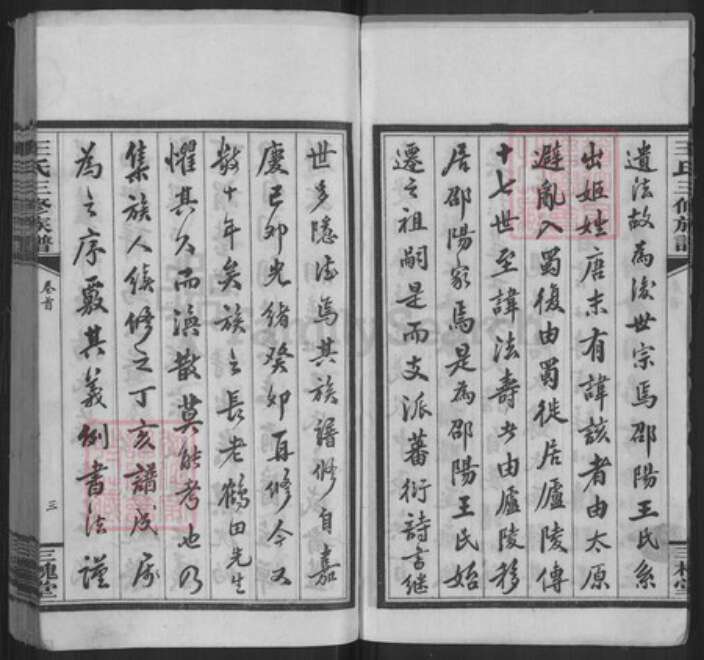 遺法故為後世宗焉邵陽王氏系
出姬姓唐末有諱該者由太原
避亂入蜀復由蜀徙居廬陵傳
十七世至諱法壽公由廬陵移
居邵陽家焉是為邵陽王氏始
遷之祖嗣是而支派蕃衍詩書繼
世多隱德焉其族譜修自嘉
慶己卯光緒癸卯再修今又
數十年矣族之長老鶴田先生
懼其久而渙散莫能考也乃
集族人續修之丁亥譜成屬
為之序覈其義例書法謹
王氏三修族譜
卷首
三
三槐堂